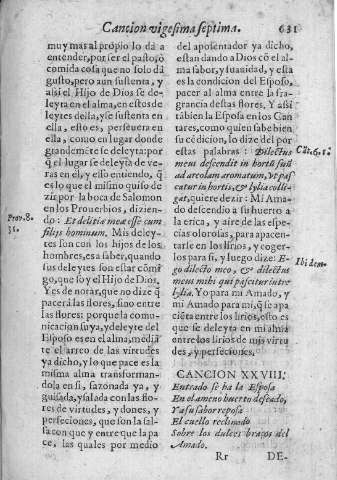 Cancion vigesima septima. 631
muy mas al propio lo dà a
entender, por ser el pasto, o
comida cosa que no solo dà
gusto, pero aun sustenta, y
assi el Hijo de Dios se de-
leyta en el alma, en estos de
leytes della, y se sustenta en
ella, esto es, persevera en
ella, como en lugar donde
grandemẽte se deleyta: por
q̃ el lugar se deleyta de ve-
ras en el, y esso entiendo, q̃
es lo que el mismo quiso de
zir por la boca de Salomon
en los Proverbios, dizien-
do: Et delitiæ meæ esse cum
filijs hominum. Mis deley-
tes son con los hijos de los
hombres, esa saber, quando
sus deleytes son estar cõmi
go, que soy el Hijo de Dios.
Y es de notar, que no dize q̃
pacerà las flores, sino entre
las flores: porque la comu-
nicacion suya, y deleyte del
Esposo es en el alma, media
te el arreo de las virtudes
ya dicho, y lo que pace es la
misma alma transforman-
dola en si, sazonada ya, y
guisada, y salada con las flo-
res de virtudes, y dones, y
perfeciones, que son la sal-
sa con que y entre que la pa
ce, las quales por medio
Prov. 8.
31.
del aposentador ya dicho,
estan dando a Dios cõ el al-
ma sabor, y suavidad, y esta
es la condicion del Esposo,
pacer al alma entre la fra-
grancia destas flores. Y assi
tãbien la Esposa en los Can-
tares, como quien sabe bien
su cõdicion, lo dize del por
estas palabras: Dilectus
meus descendit in hortũ suũ
ad areolam aromatum, vt pas
catur in hortis, & lylia colli-
gat, quiere dezir: Mi Ama-
do descendio a su huerto a
la erica, y aire de las espe-
cias olorosas, para apacen-
tarse en los lirios, y coger-
los para si, y luego dize: E-
go dilecto meo, & dilectus
meus mihi qui pascitur inter
lylia. Yo para mi Amado, y
mi Amado para mi, q̃ se apa
ciẽta entre los lirios, esto es
que se deleyta en mi alma
entre los lirios de mis virtu
des, y perfeciones.
Cãt. 6. 1.
Ibidem.
CANCION XXVIII.
Entrado se ha la Esposa
En el ameno huerto deseado,
Y a su sabor reposa
El cuello reclinado
Sobre los dulces braços del
Amado.
Rr DE-